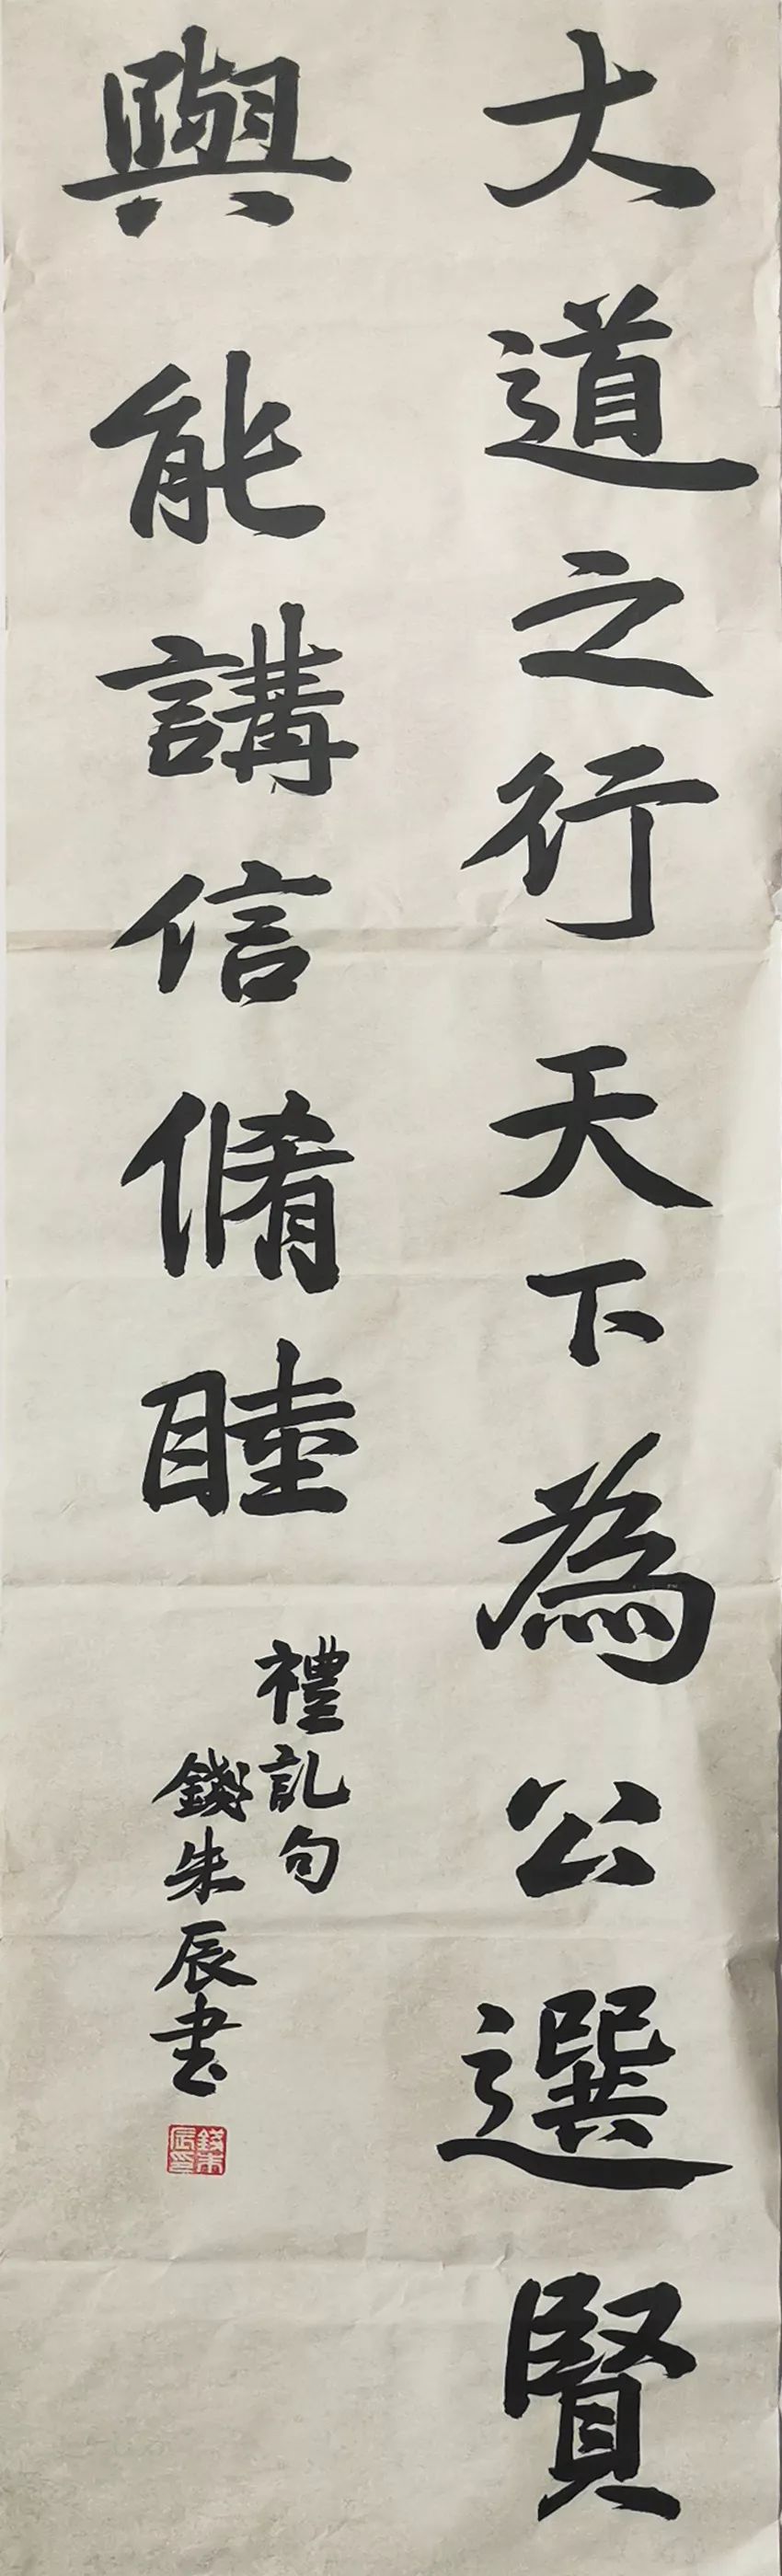 大道之行天下為公選賢
與能講信脩睦
禮記句
錢朱辰書
錢朱辰印